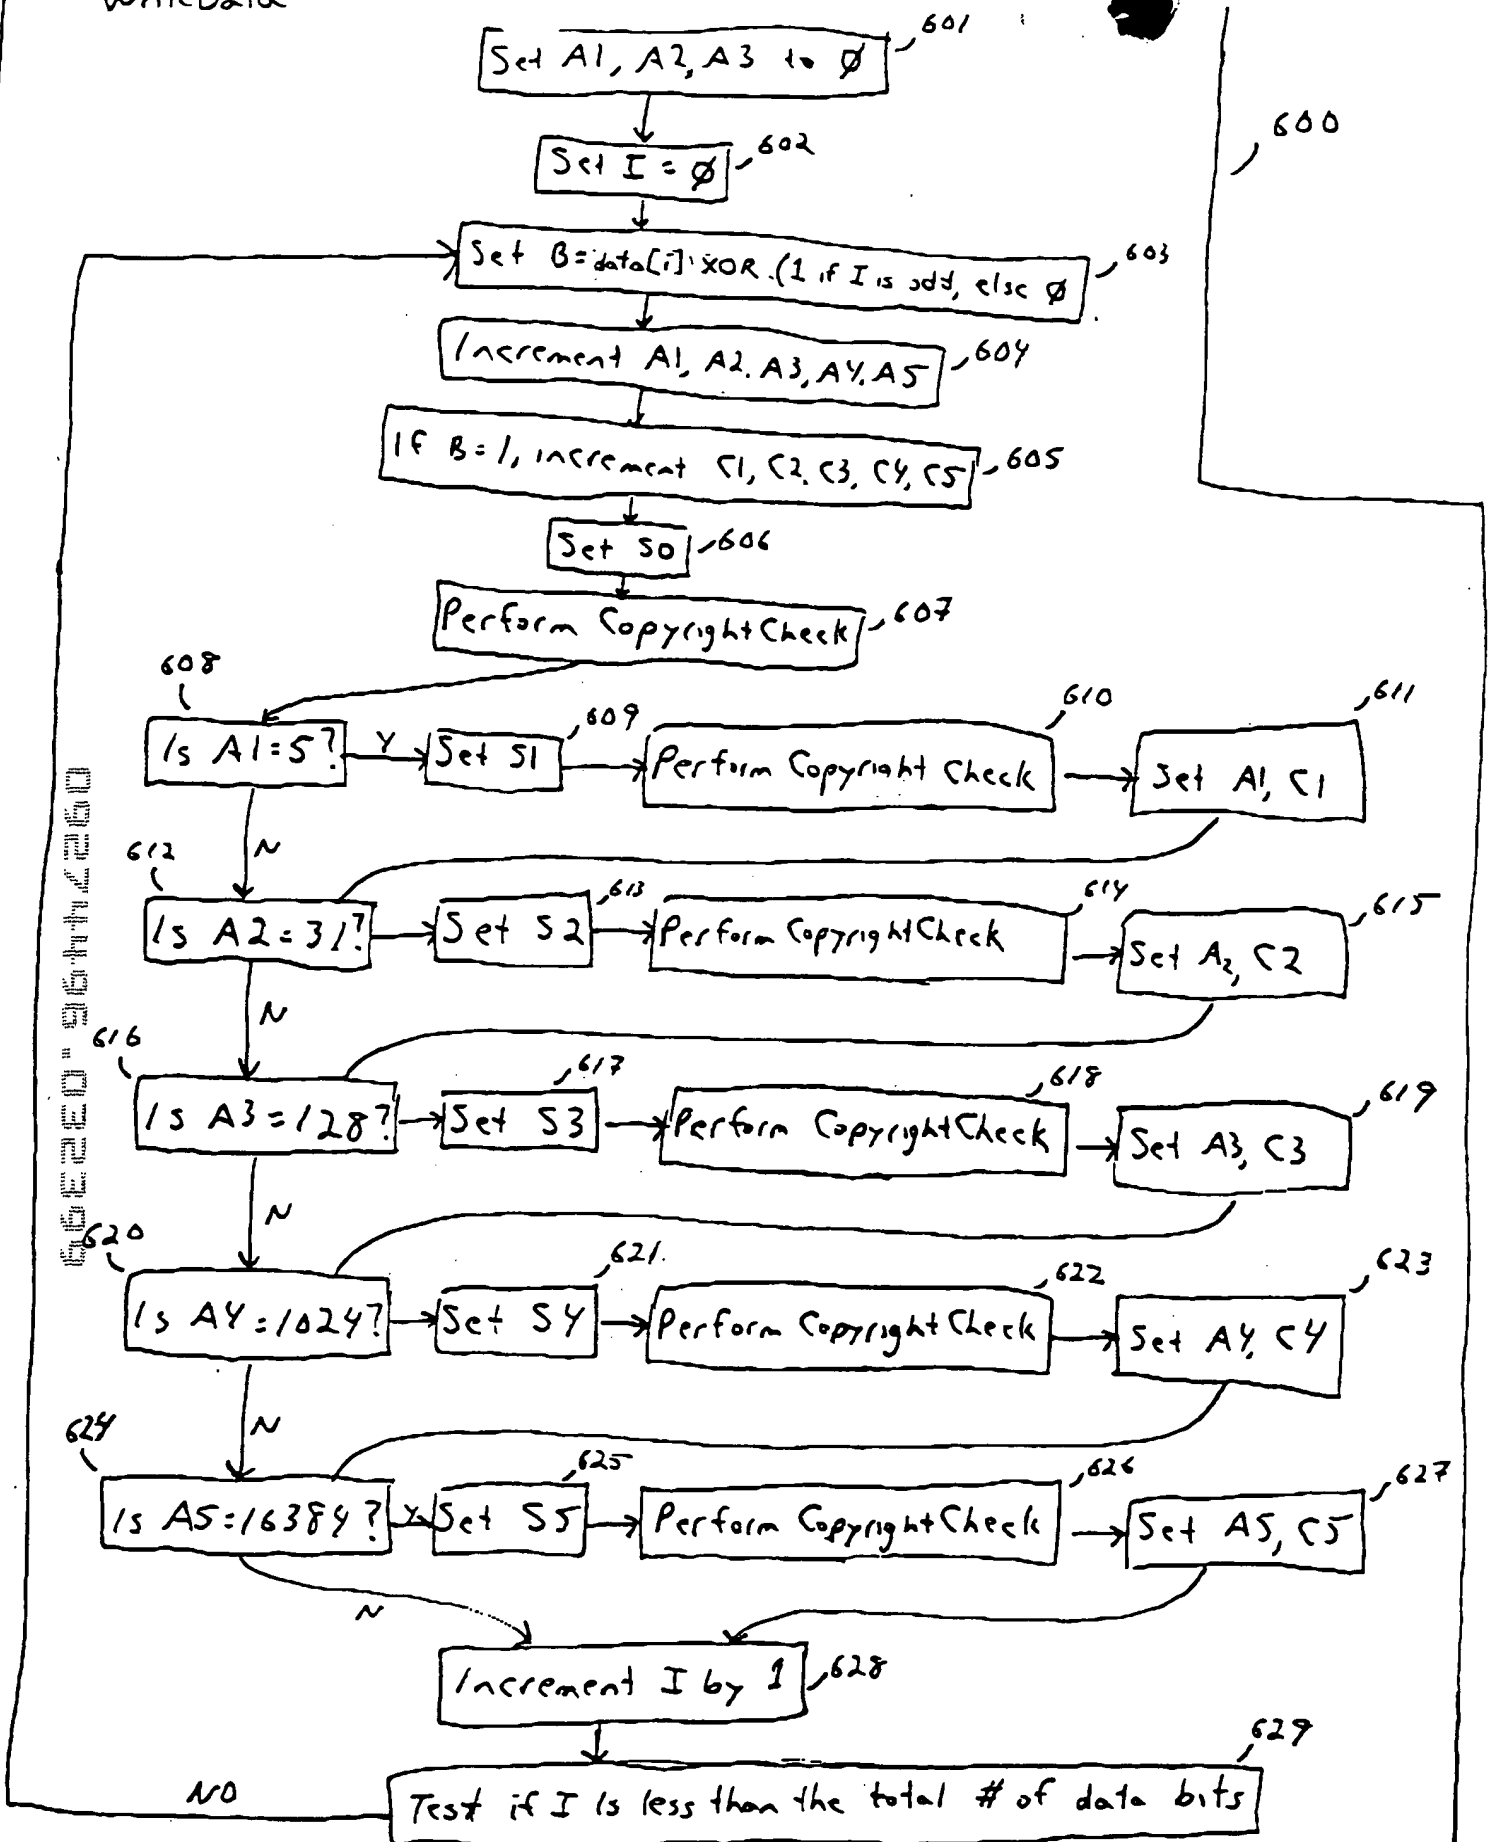 WriteData
Set A1, A2, A3 to Ø
601
600
Set I = Ø
602
Set B=data[i] XOR (1 if I is odd, else Ø
603
Increment A1, A2. A3, A4. A5
604
If B=1, increment C1, C2. C3, C4, C5
605
Set S0
606
Perform CopyrightCheck
607
608
Is A1=5?
Y
Set S1
609
Perform Copyright Check
610
Set A1, C1
611
N
612
Is A2=31?
Set S2
613
Perform CopyrightCheck
614
Set A2, C2
615
N
616
Is A3=128?
Set S3
617
Perform CopyrightCheck
618
Set A3, C3
619
N
620
Is A4=1024?
Set S4
621
Perform CopyrightCheck
622
Set A4, C4
623
N
624
Is A5=16384?
Y
Set S5
625
Perform CopyrightCheck
626
Set A5, C5
627
N
Increment I by 1
628
629
NO
Test if I is less than the total # of data bits
09274496.032399